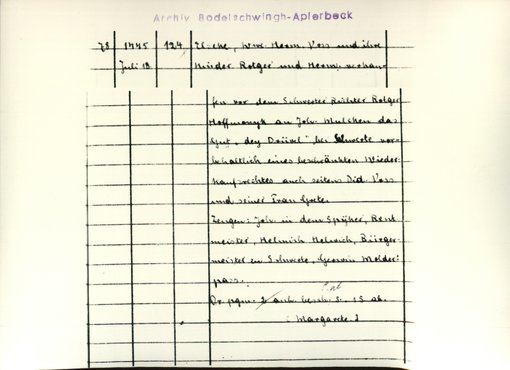 Archiv Bodelschwingh-Aplerbeck
78 1445 124 Elseke, Wwe Herm. Voss und ihre
Juli 13 Kinder Rotger und Herm. verkau-
fen vor dem Schwerter Richter Rotger
an Joh. Mulchen das
Gut "dey Düüvel" bei Schwerte vor-
behaltlich eines beschränkten Wieder-
kaufrechtes auch seitens Did. Voss
und seiner Frau Grete.
Zeugen: Joh. in dem Spyker, Rent
meister, Helmich Helmich, Bürger-
meister in Schwerte,
pass.
Or. pgm. 2 anh. besch. S. 1 S ab.
(Margarete.)